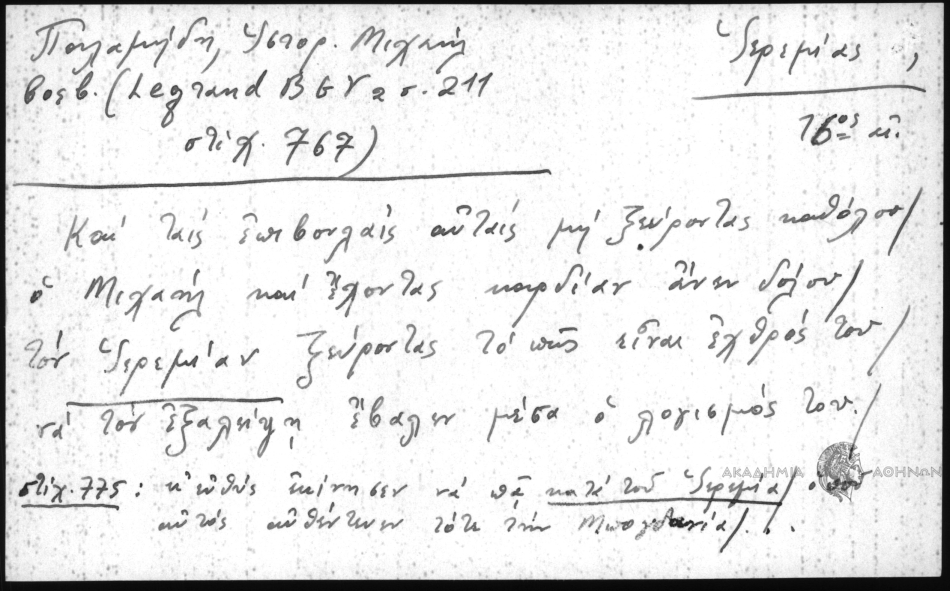 Παλαμήδη, Ἱστορ. Μιχαὴλ
βοεβ. (Legrand BGV 2 σ. 211
στίχ. 767)
Ἱερεμίας,
16ος αἰ.
Καὶ ταῖς ἐπιβουλαῖς αὐταῖς μὴ ξεύροντας καθόλου/
ὁ Μιχαὴλ καὶ ἔχοντας καρδίαν ἄνευ δόλου/
τὸν Ἱερεμίαν ξεύροντας τὸ πῶς εἶναι ἐχθρός του/
νὰ τὸν ἐξαλείψῃ ἔβαλεν μέσα ὁ λογισμός του./
στίχ. 775: κ' εὐθὺς ἐκίνησεν νὰ πᾶ κατὰ τοῦ Ἱερεμία/ ὁποῦ
αὐτὸς αὐθέντευεν τότε τὴν Μπογδανία/. . .
ΑΚΑΔΗΜΙΑ ΑΘΗΝΩΝ